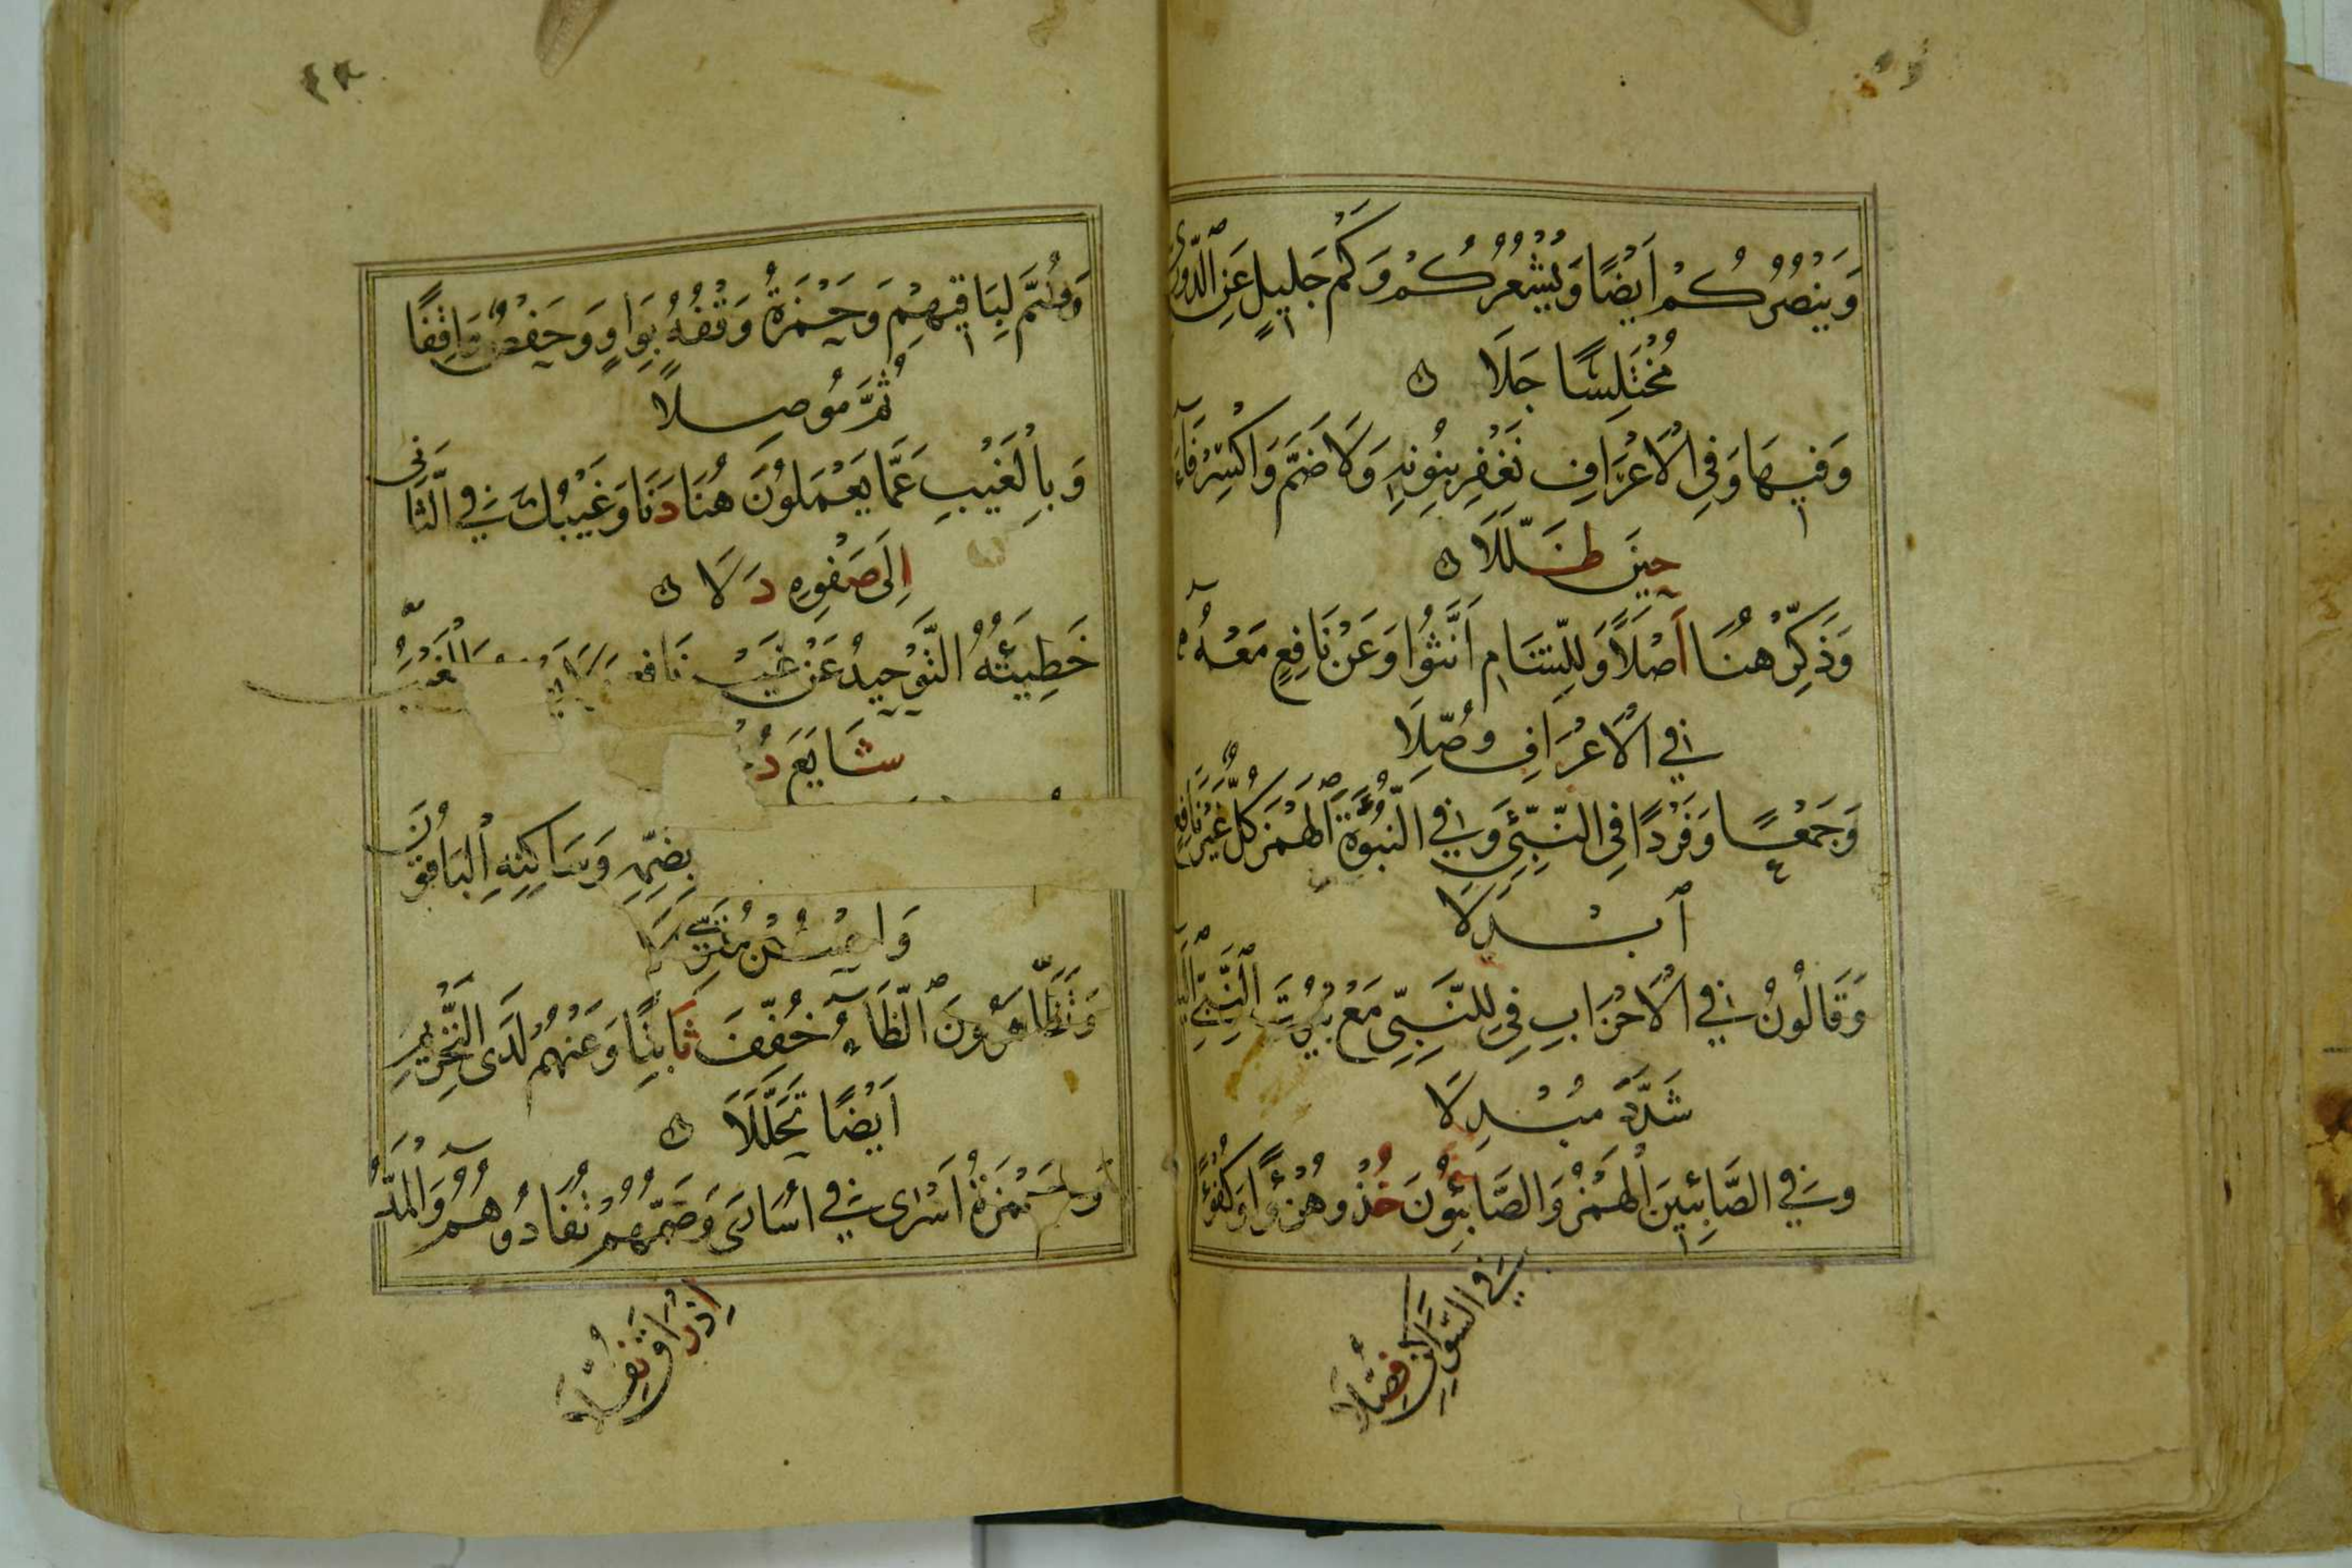 وَيَنْصُرُكُمْ اَيْضًا وَيُشْعِرُكُمْ وَكَمْ جَلِيلٍ عَنِ ٱلدُّورِى
مُخْتَلِسًا جَلَا
وَفِيهَا وَفِي الْاَعْرَافِ نَغْفِرْ بِنُونِهِ وَلَا ضَمَّ وَاكْسِرْ فَآءَ
حِينَ ظَلَّلَا
وَذَكِّرْ هُنَا اَصْلاً وَلِلشَّامِ اَنَّثُوا وَعَنْ نَافِعٍ مَعْهُ
فِي الْاَعْرَافِ وُصِّلَا
وَجَمْعًا وَفَرْدًا فِى النَّبِّئِ وَفِي النُّبُوَّةِ ٱلْهَمْزَ كُلٌّ غَيْرَ نَافِعٍ
ٱبْدَلَا
وَقَالُونُ فِي الْاَحْزَابِ فِي لِلنَّبِيِّ مَعْ بُيُوتَ ٱلنَّبِيِّ
شَدَّدَ مُبْدِلَا
وَفِي الصَّابِئِينَ الْهَمْزُ وَالصَّابِئُونَ خُذْ وَهُزْؤًا وَكُفْؤًا
فِي السَّوَاكِنِ فُصِّلَا
وَضُمَّ لِبَاقِيهِمْ وَحَمْزَةُ وَقْفُهُ بِوَاوٍ وَحَفْصٌ وَاقِفًا
ثُمَّ مُوصِلًا
وَبِالْغَيْبِ عَمَّا يَعْمَلُونَ هُنَا دَنَا وَغَيْبُكَ فِي الثَّانِى
اِلَى صَفْوِهِ دَلَا
خَطِيئَتُهُ التَّوْحِيدُ عَنْ غَيْرِ نَافِعٍ الْغَيْبُ
شَايَعَ دُ
بِضَمِّهِ وَسَاكِنِهِ الْبَاقُونَ
وَاحْسُنْ مُقَوِّلَا
وَتَظَّاهَرُونَ ٱلظَّآءُ خُفِّفَ ثَابِتًا وَعَنْهُمْ لَدَى التَّحْرِيمِ
اَيْضًا تَحَلَّلَا
وَحَمْزَةُ اَسْرَى فِي اُسَارَى وَضَمُّهُمْ تُفَادُوهُمُ وَالْمَدُّ
اِذْ رَاقَ نُفِّلَا